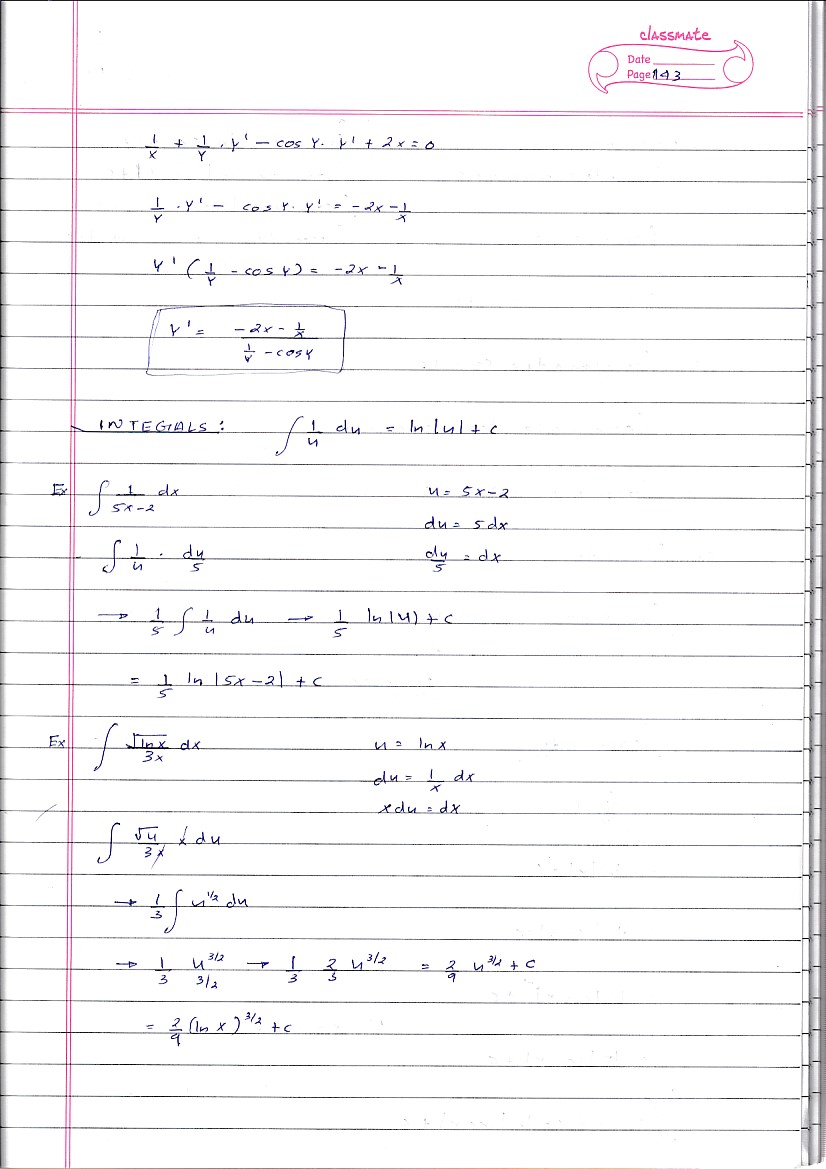 classmate
Date
Page 143
1/x + 1/y . y' - cos y . y' + 2x = 0
1/y . y' - cos y . y' = -2x - 1/x
y' (1/y - cos y) = -2x - 1/x
y' = (-2x - 1/x) / (1/y - cos y)
INTEGIALS : ∫ 1/u du = ln |u| + c
Ex ∫ 1/(5x-2) dx u = 5x-2
du = 5dx
∫ 1/u . du/5 du/5 = dx
→ 1/5 ∫ 1/u du → 1/5 ln |u| + c
= 1/5 ln |5x-2| + c
Ex ∫ √(ln x)/3x dx u = ln x
du = 1/x dx
x du = dx
∫ √u/3x x du
→ 1/3 ∫ u^1/2 du
→ 1/3 u^3/2 / 3/2 → 1/3 2/3 u^3/2 = 2/9 u^3/2 + c
= 2/9 (ln x)^3/2 + c